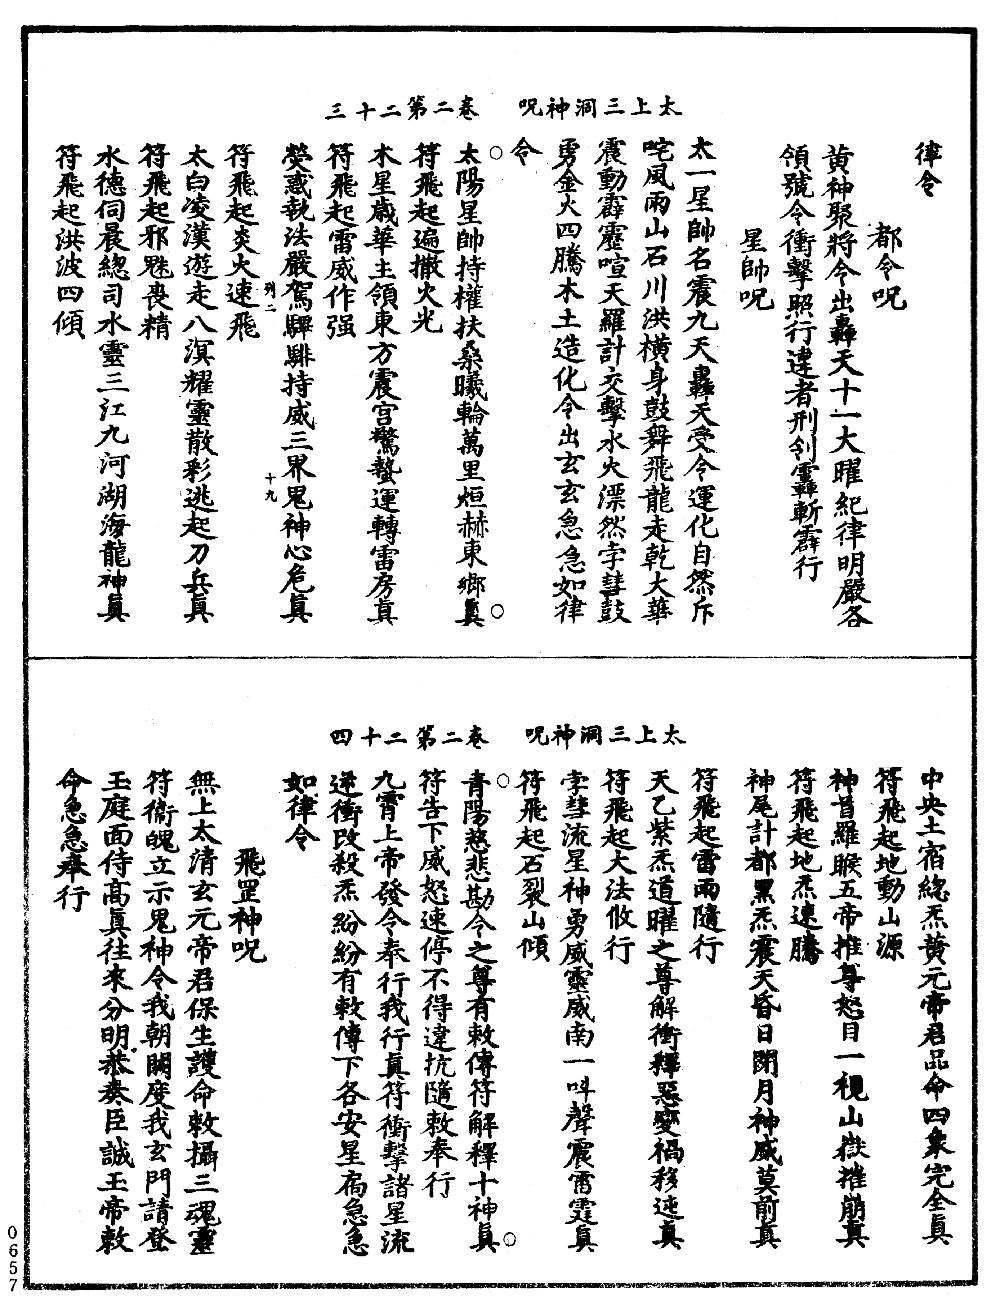 太上三洞神呪　卷二第二十三
律令
都令呪
黄神聚將令出轟天十一大曜紀律明嚴各
領號令衝擊照行違者刑剉霻斬霹行
星帥呪
太一星帥名震九天轟天受令運化自然斥
咤風雨山石川洪横身鼓舞飛龍走乾大華
震動霹靂喧天羅計交擊水火漂然孛彗鼓
勇金火四騰木土造化令出玄玄急急如律
令
太陽星帥持權扶桑曦輪萬里烜赫東鄉眞
符飛起遍撒火光
木星歲華主領東方震宫驚蟄運轉雷房眞
符飛起雷威作强
熒惑執法嚴駕騨騑持威三界鬼神心危眞
符飛起炎火速飛
列二
十九
太白凌漢遊走八溟耀靈散彩逃起刀兵眞
符飛起邪魅喪精
水德伺晨緫司水靈三江九河湖海龍神眞
符飛起洪波四傾
太上三洞神呪　卷二第二十四
中央土宿緫炁黄元帝君品命四象完全眞
符飛起地動山源
神首羅睺五帝推尊怒目一視山嶽摧崩眞
符飛起地炁速騰
神尾計都黑炁震天昏日閉月神威莫前眞
符飛起雷雨隨行
天乙紫炁道曜之尊解衝釋惡變禍移迍眞
符飛起大法攸行
孛彗流星神勇威靈威南一呌聲震雷霆眞
符飛起石裂山傾
青陽慈悲勘令之尊有敕傳符解釋十神眞
符告下威怒速停不得違抗隨敕奉行
九霄上帝發令奉行我行眞符衝擊諸星流
逆衝改殺炁紛紛有敕傳下各安星宿急急
如律令
飛罡神呪
無上太清玄元帝君保生護命敕攝三魂靈
符衞魄立示鬼神令我朝闕度我玄門請登
玉庭面侍高眞往來分明恭奏臣誠玉帝敕
命急急奉行
0657